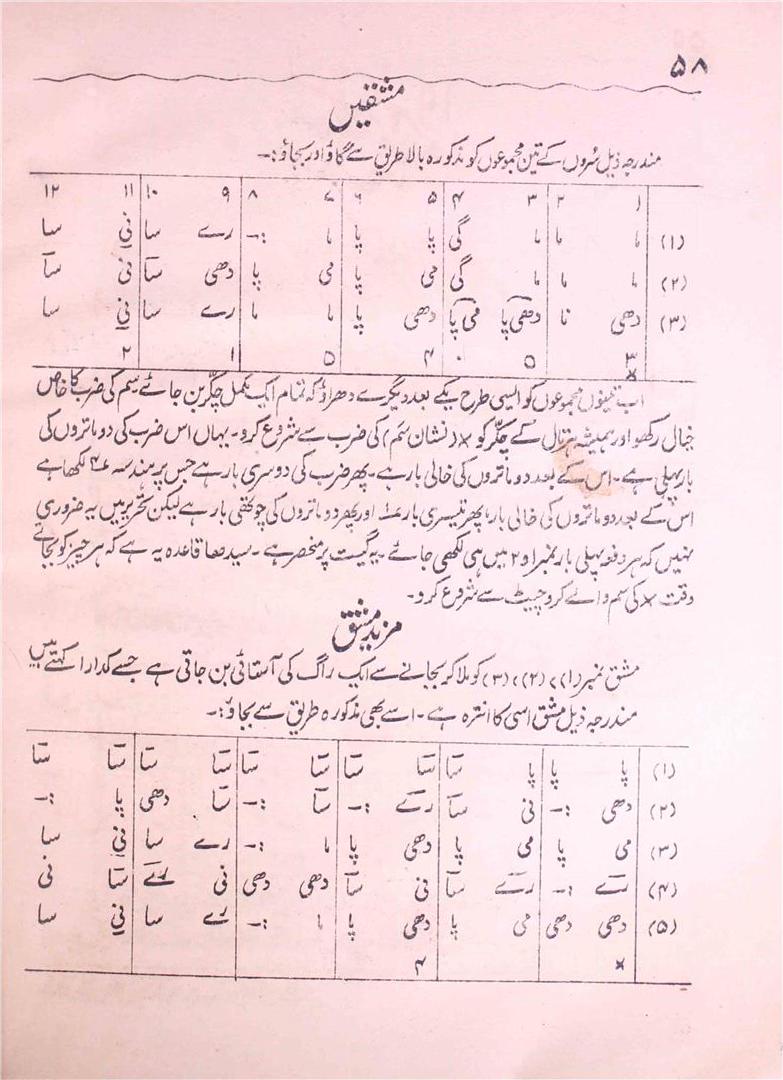 ۵۸
مشقیں
مندرجہ ذیل سُروں کے تین مجموعوں کو مذکورہ بالا طریق سے گاؤ اور بجاؤ:۔
۱ ۲ ۳ ۴ ۵ ۶ ۷ ۸ ۹ ۱۰ ۱۱ ۱۲
(۱) ما ما ما گی پا پا ما :۔ رے سا نی سا
(۲) ما ما ما گی می پا می پا دھی سا نی سا
(۳) دھی نا دھی پا می پا دھی پا ما ما رے سا نی سا
۳ × ۵ ۰ ۴ ۵ ۱ ۲
اب تینوں مجموعوں کو اسی طرح یکے بعد دیگرے دھراؤ کہ تمام ایک مکمل چکّر بن جائے سِم کی ضرب کا خاص
خیال رکھو اور ہمیشہ ہر تال کے چکّر کو × (نشان سَم) کی ضرب سے شروع کرو۔ یہاں اس ضرب کی دو ماتروں کی
بار پہلی ہے۔ اس کے بعد دو ماتروں کی خالی بار ہے۔ پھر ضرب کی دوسری بار ہے جس پر ہندسہ ۴ لکھا ہے
اس کے بعد دو ماتروں کی خالی بار، پھر تیسری بار ۱ اور پھر دو ماتروں کی چوتھی بار ہے لیکن تحریر میں یہ ضروری
نہیں کہ ہر دفعہ پہلی بار نمبر ۱ و ۲ میں ہی لکھی جائے۔ یہ گیت پر منحصر ہے۔ سیدھا قاعدہ یہ ہے کہ ہر چیز کو بجاتے
وقت × کی سم والے کروچیٹ سے شروع کرو۔
مزید مشق
مشق نمبر (۱)، (۲)، (۳) کو ملا کر بجانے سے ایک راگ کی آستائی بن جاتی ہے جسے کدارا کہتے ہیں
مندرجہ ذیل مشق اسی کا انترہ ہے۔ اسے بھی مذکورہ طریق سے بجاؤ:۔
(۱) پا پا پا سا سا سا سا سا سا سا سا سا
(۲) دھی :۔ نی سا رے :۔ سا :۔ سا دھی پا :۔
(۳) می پا می پا دھی پا ما :۔ رے سا نی سا
(۴) رے :۔ رے سا نی سا دھی دھی نی رے سا نی
(۵) دھی دھی می پا دھی پا ما :۔ رے سا نی سا
× ۴